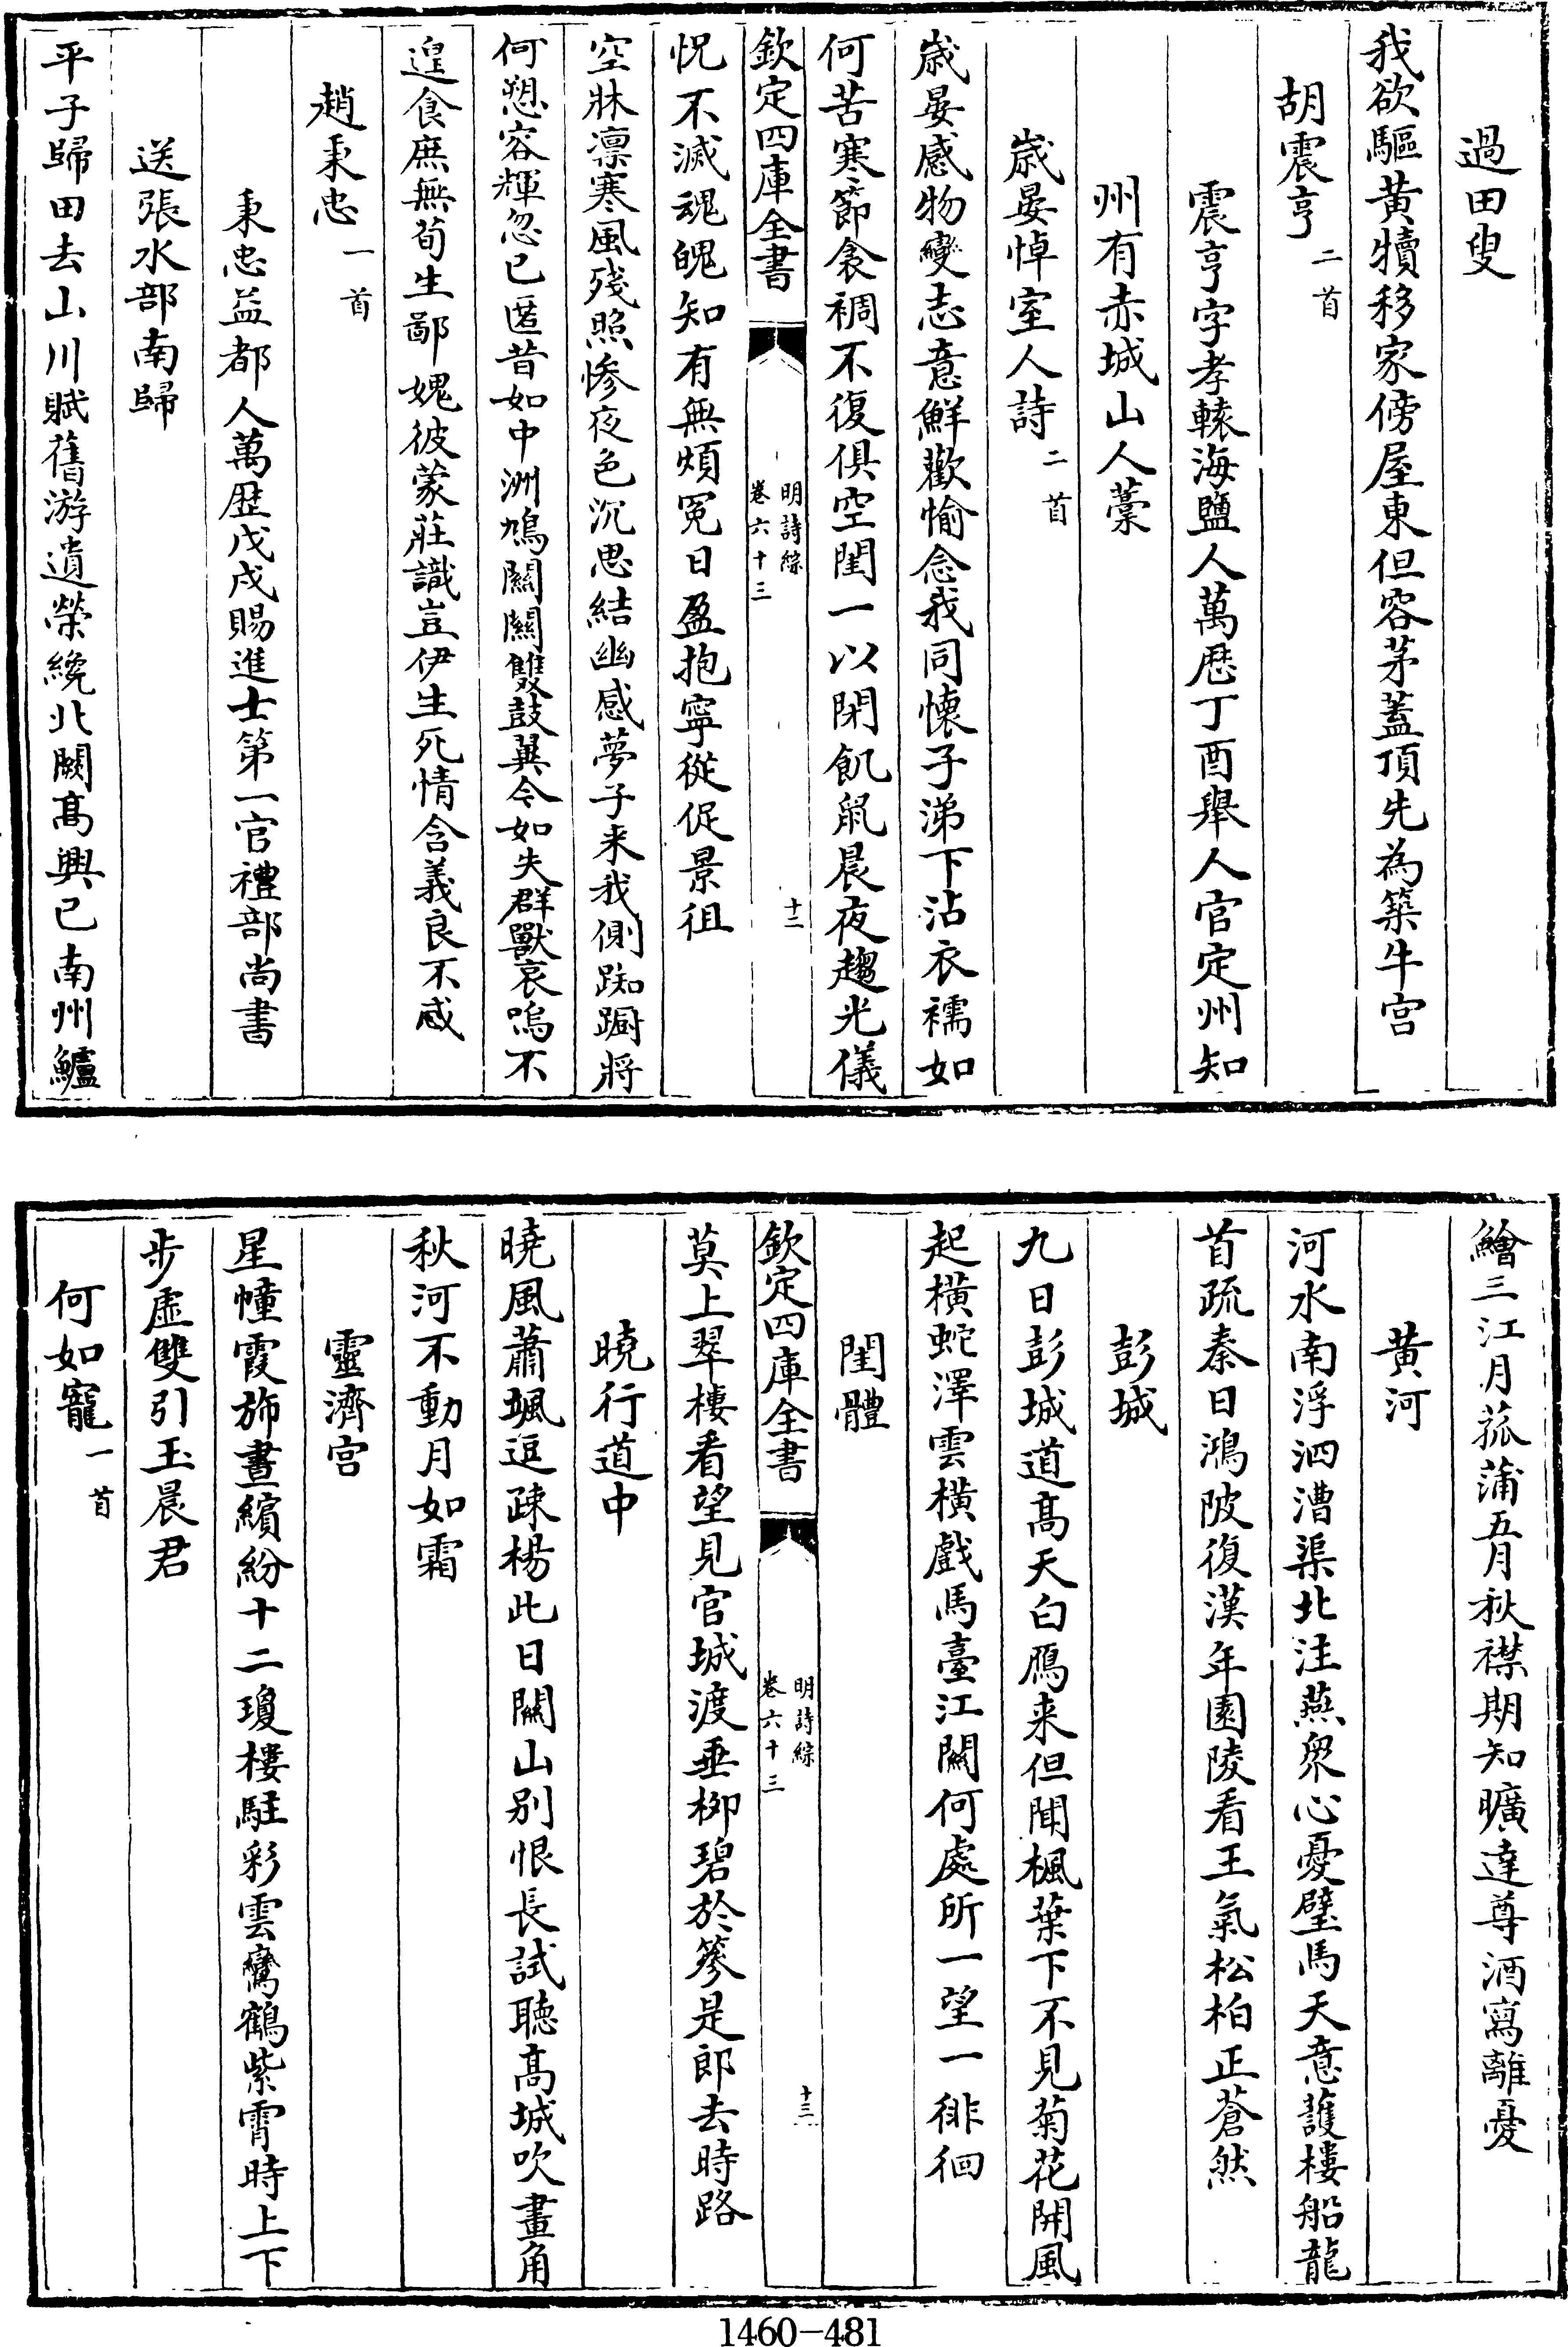 過田叟
我欲驅黃犢移家傍屋東但容茅蓋頂先為築牛宫
胡震亨二首
震亨字孝轅海鹽人萬厯丁酉舉人官定州知
州有赤城山人藁
歳晏悼室人詩二首
歳晏感物變志意鮮歡愉念我同懐子涕下沾衣襦如
何苦寒節衾裯不復俱空閨一以閉飢鼠晨夜趨光儀
欽定四庫全書
明詩綜
卷六十三
十二
怳不滅魂魄知有無煩冤日盈抱寧從促景徂
空牀凛寒風殘照慘夜色沉思結幽感夢子来我側踟蹰將
何愬容輝忽已匿昔如中洲鳩關關雙鼓翼今如失群獸哀嗚不
遑食庶無荀生鄙媿彼蒙莊識豈伊生死情含義良不忒
趙秉忠一首
秉忠益都人萬歴戊戌賜進士第一官禮部尚書
送張水部南歸
平子歸田去山川賦舊游遺榮纔北闕髙興已南州鱸
鱠三江月菰蒲五月秋襟期知曠達尊酒寫離憂
黄河
河水南浮泗漕渠北注燕衆心憂璧馬天意護樓船龍
首疏秦日鴻陂復漢年園陵看王氣松柏正蒼然
彭城
九日彭城道髙天白鴈来但聞楓葉下不見菊花開風
起橫蛇澤雲橫戲馬臺江關何處所一望一徘徊
閨體
欽定四庫全書
明詩綜
卷六十三
十三
莫上翠樓看望見官城渡垂栁碧於簩是郎去時路
曉行道中
曉風蕭颯逗疎楊此日關山别恨長試聽髙城吹畫角
秋河不動月如霜
靈濟宫
星幢霞斾晝繽紛十二瓊樓駐彩雲鸞鶴紫霄時上下
步虛雙引玉晨君
何如寵一首
1460-481